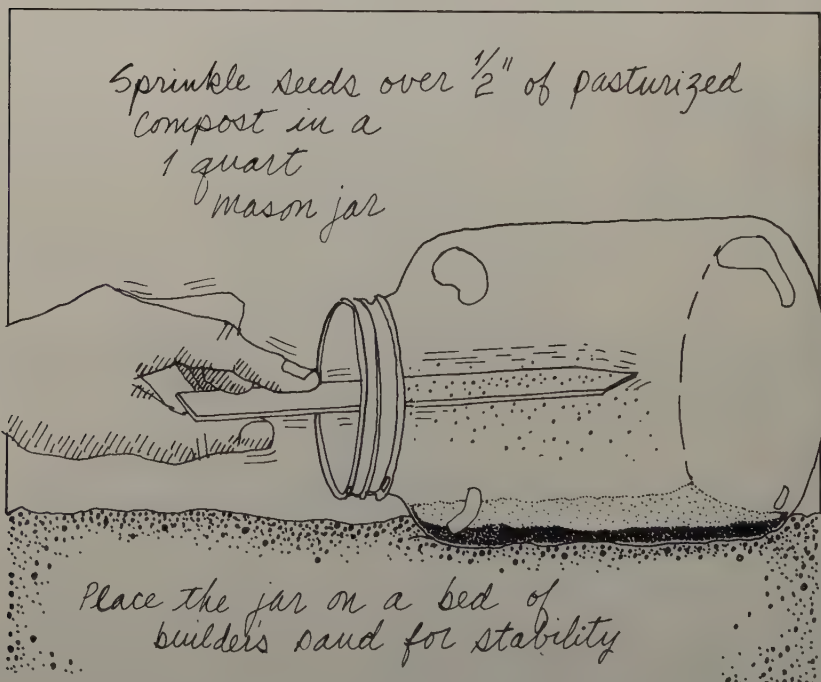 Sprinkle seeds over 1/2" of pasturized
compost in a
1 quart
mason jar
Place the jar on a bed of
builder's sand for stability